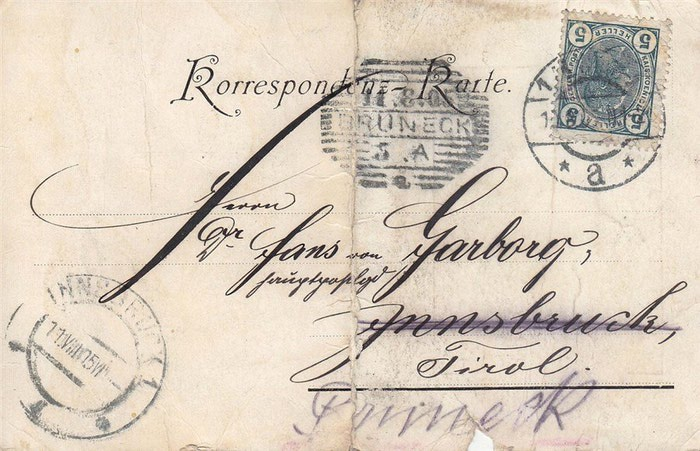 Korrespondenz-Karte.
5 HELLER 5
5 5
BRUNECK
5.A
a
* a *
Herrn
Dr Hans von Garborg,
hauptpostlgd
Innsbruck,
Tirol.
Bruneck
INNSBRUCK 1